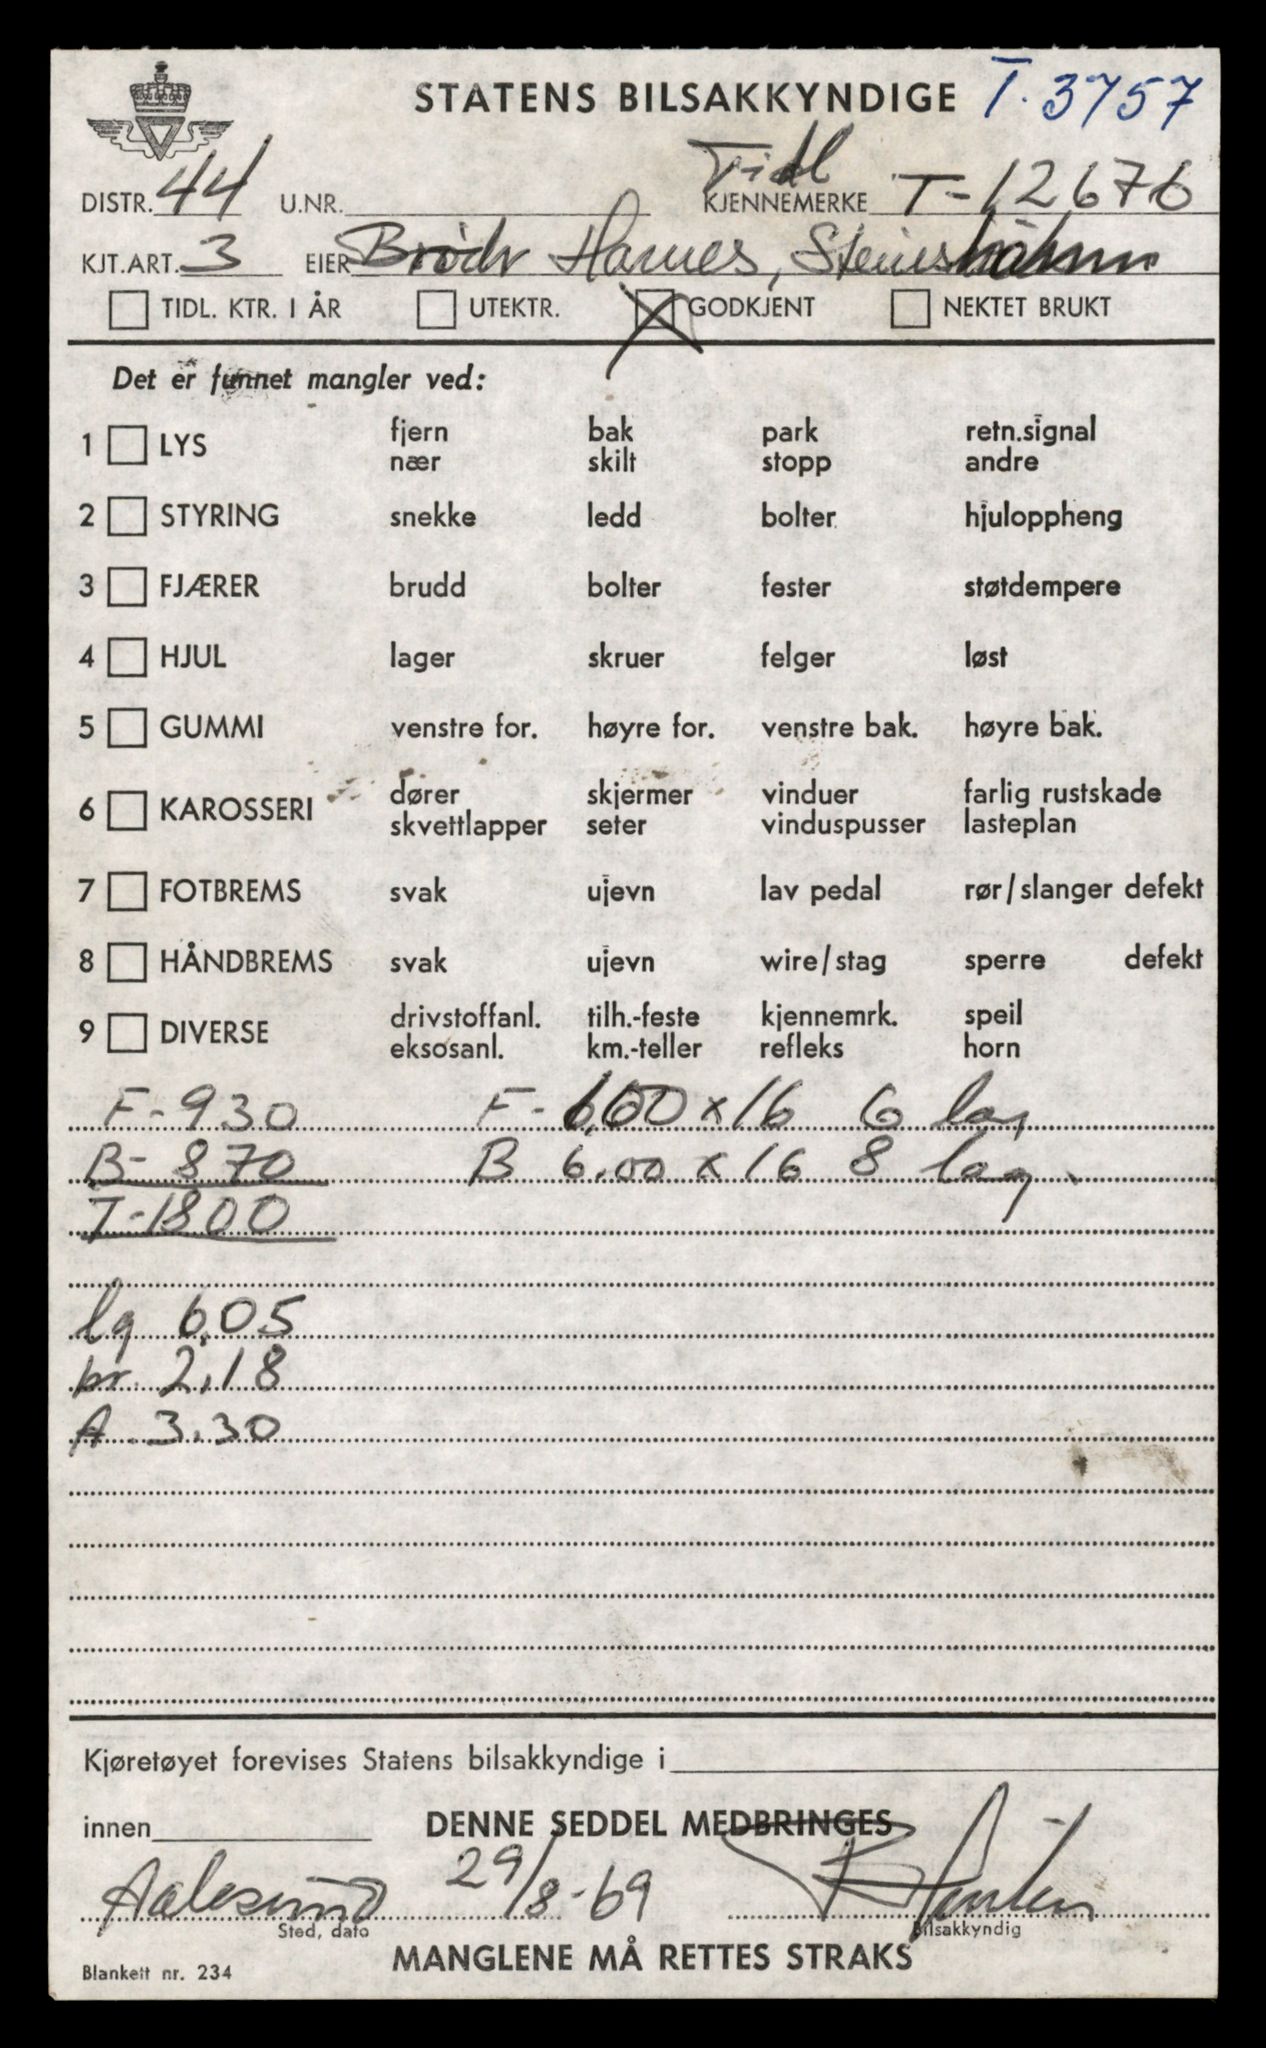 STATENS BILSAKKYNDIGE T. 3757
Tidl
DISTR. 44 U.NR. KJENNEMERKE T-12676
KJT.ART. 3 EIER Brødr Harnes, Steinshamn
TIDL. KTR. I ÅR UTEKTR. GODKJENT NEKTET BRUKT
Det er funnet mangler ved:
fjern bak park retn.signal
1 LYS
nær skilt stopp andre
2 STYRING snekke ledd bolter hjuloppheng
3 FJÆRER brudd bolter fester støtdempere
4 HJUL lager skruer felger løst
5 GUMMI venstre for. høyre for. venstre bak. høyre bak.
dører skjermer vinduer farlig rustskade
6 KAROSSERI
skvettlapper seter vinduspusser lasteplan
7 FOTBREMS svak ujevn lav pedal rør/slanger defekt
8 HÅNDBREMS svak ujevn wire/stag sperre defekt
drivstoffanl. tilh.-feste kjennemrk. speil
9 DIVERSE
eksosanl. km.-teller refleks horn
F-930 F- 6,00 x 16 6 lag
B- 870 B 6.00 x 16 8 lag
T-1800
lg 6,05
br. 2,18
A. 3.30
Kjøretøyet forevises Statens bilsakkyndige i
innen DENNE SEDDEL MEDBRINGES
Aalesund 29/8-69
Sted, dato Bilsakkyndig
MANGLENE MÅ RETTES STRAKS
Blankett nr. 234